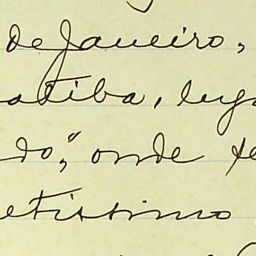 de Janeiro,
atiba, luga
do", onde te
etissimo